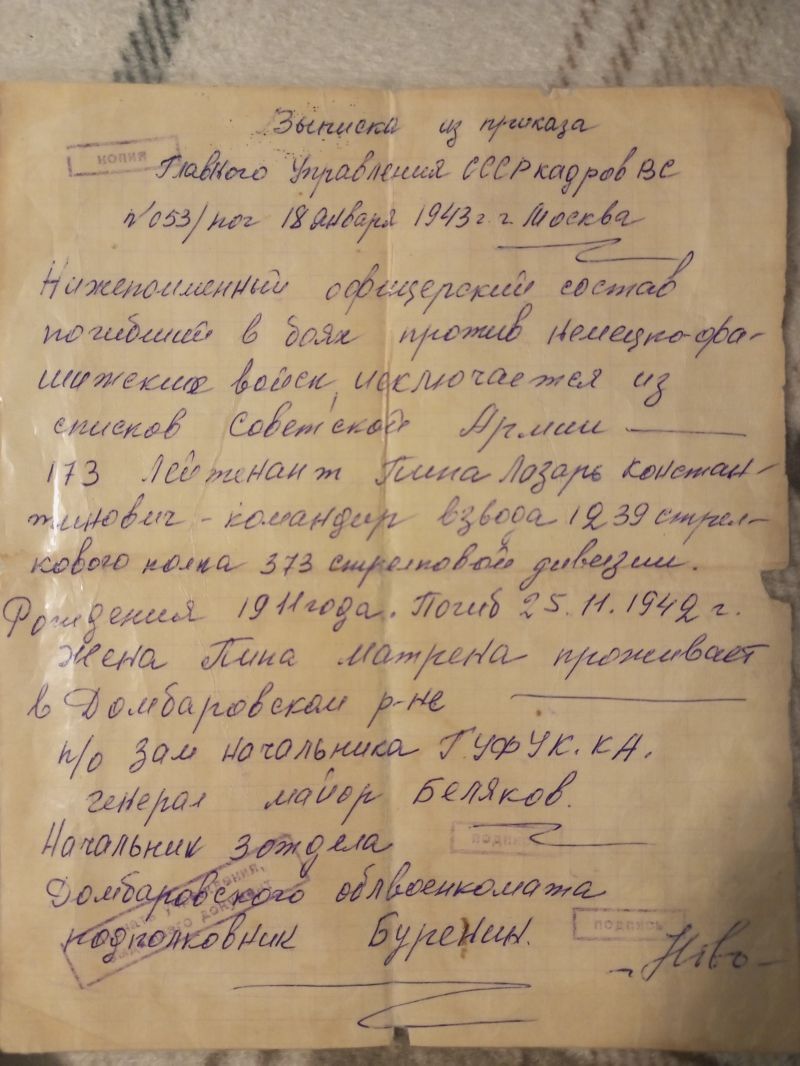 Выписка из приказа
КОПИЯ
Главного Управления СССР кадров ВС
№053/пог 18 января 1943 г. г. Москва
Нижепоименный офицерский состав
погибший в боях против немецко-фа-
шижских войск, исключается из
списков Советской Армии
173 Лейтенант Пипа Лазарь Констан-
тинович - командир взвода 1239 стрел-
кового полка 373 стрелковой дивизии.
Рождения 1911 года. Погиб 25.11.1942 г.
Жена Пипа Матрена проживает
в Домбаровском р-не
п/о Зам начальника ГУФУК.КА.
генерал майор Беляков.
Начальник 3 отдела
ПОДПИСЬ
Домбаровского облвоенкомата
подполковник Буренин.
ПОДПИСЬ